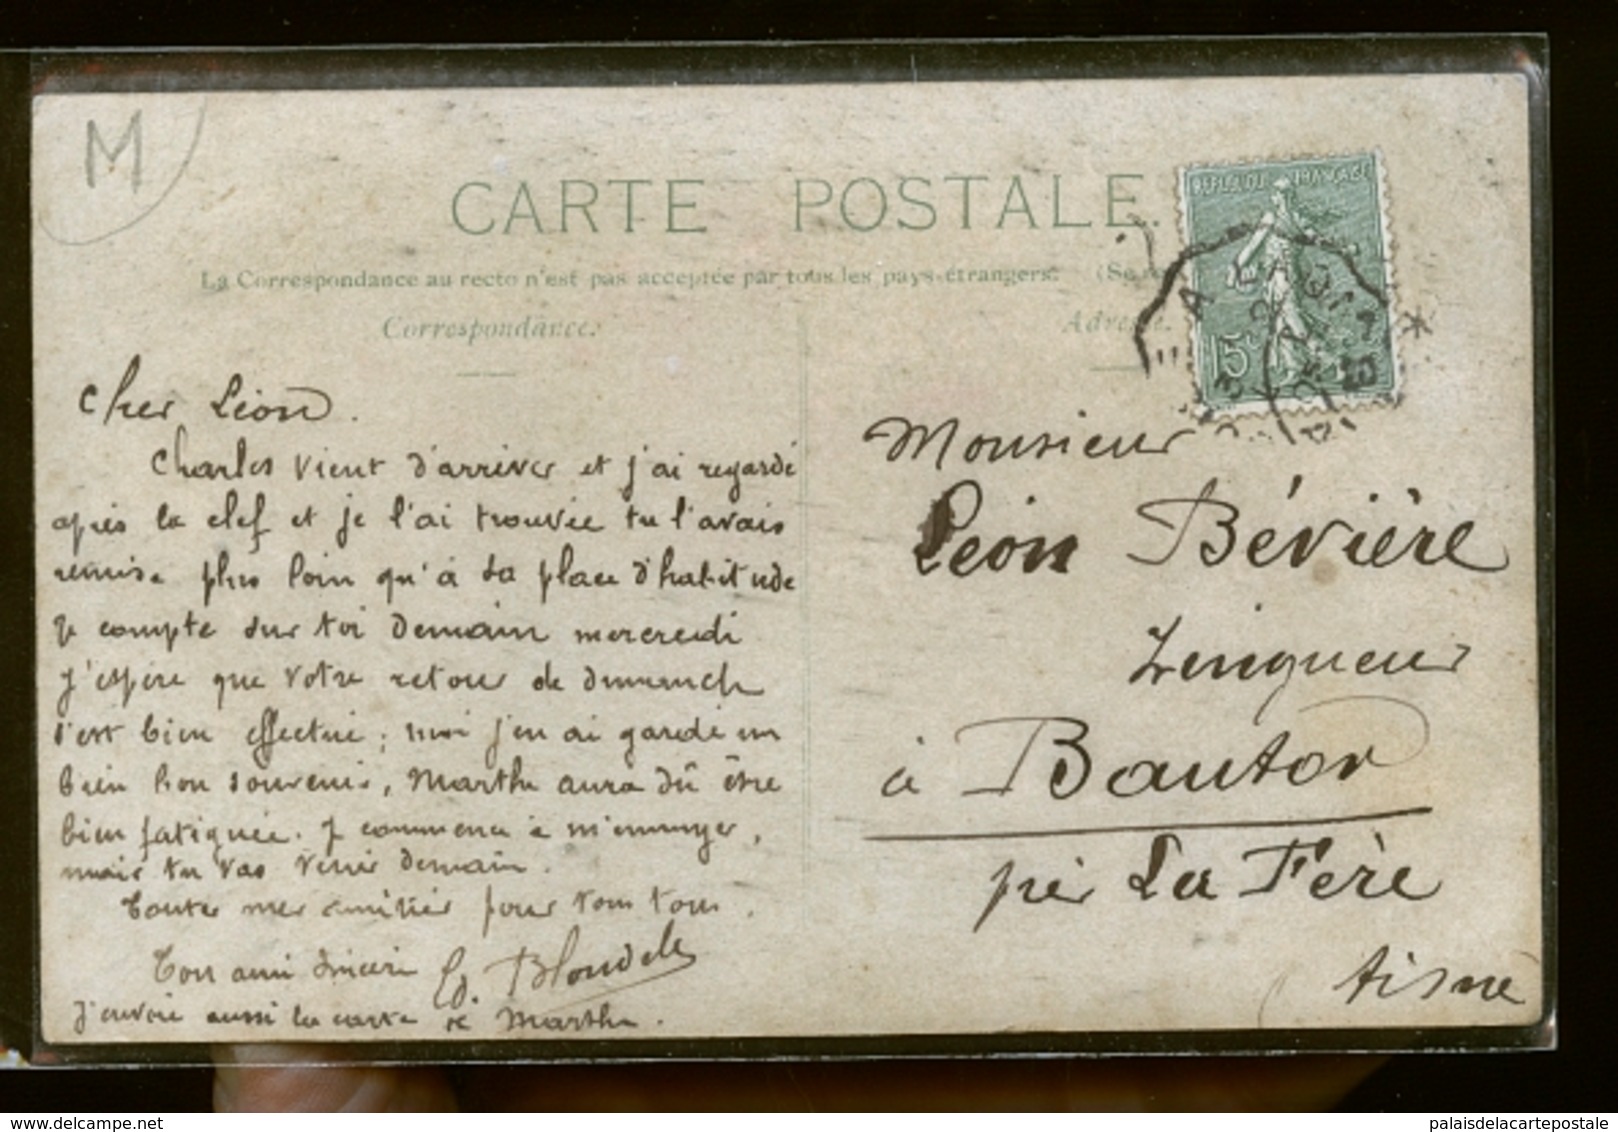 M
CARTE POSTALE.
La Correspondance au recto n'est pas acceptée par tous les pays étrangers. (Se re
Correspondance.
Adresse.
REPUBLIQUE FRANÇAISE
15c
A LAON
Cher Léon.
Charles vient d'arriver et j'ai regardé
après la clef et je l'ai trouvée tu l'avais
remise plus loin qu'à sa place d'habitude
Je compte sur toi demain mercredi
J'espère que votre retour de dimanche
s'est bien effectué ; moi j'en ai gardé un
bien bon souvenir, Marthe aura dû être
bien fatiguée. Je commence à m'ennuyer,
mais tu vas venir demain.
Toutes mes amitiés pour vous tous.
Ton ami sincère Ed. Blondele
J'envoie aussi la carte de Marthe.
Monsieur
Léon Bévière
Zingueur
à Bautor
près La Fère
Aisne
palaisdelacartepostale